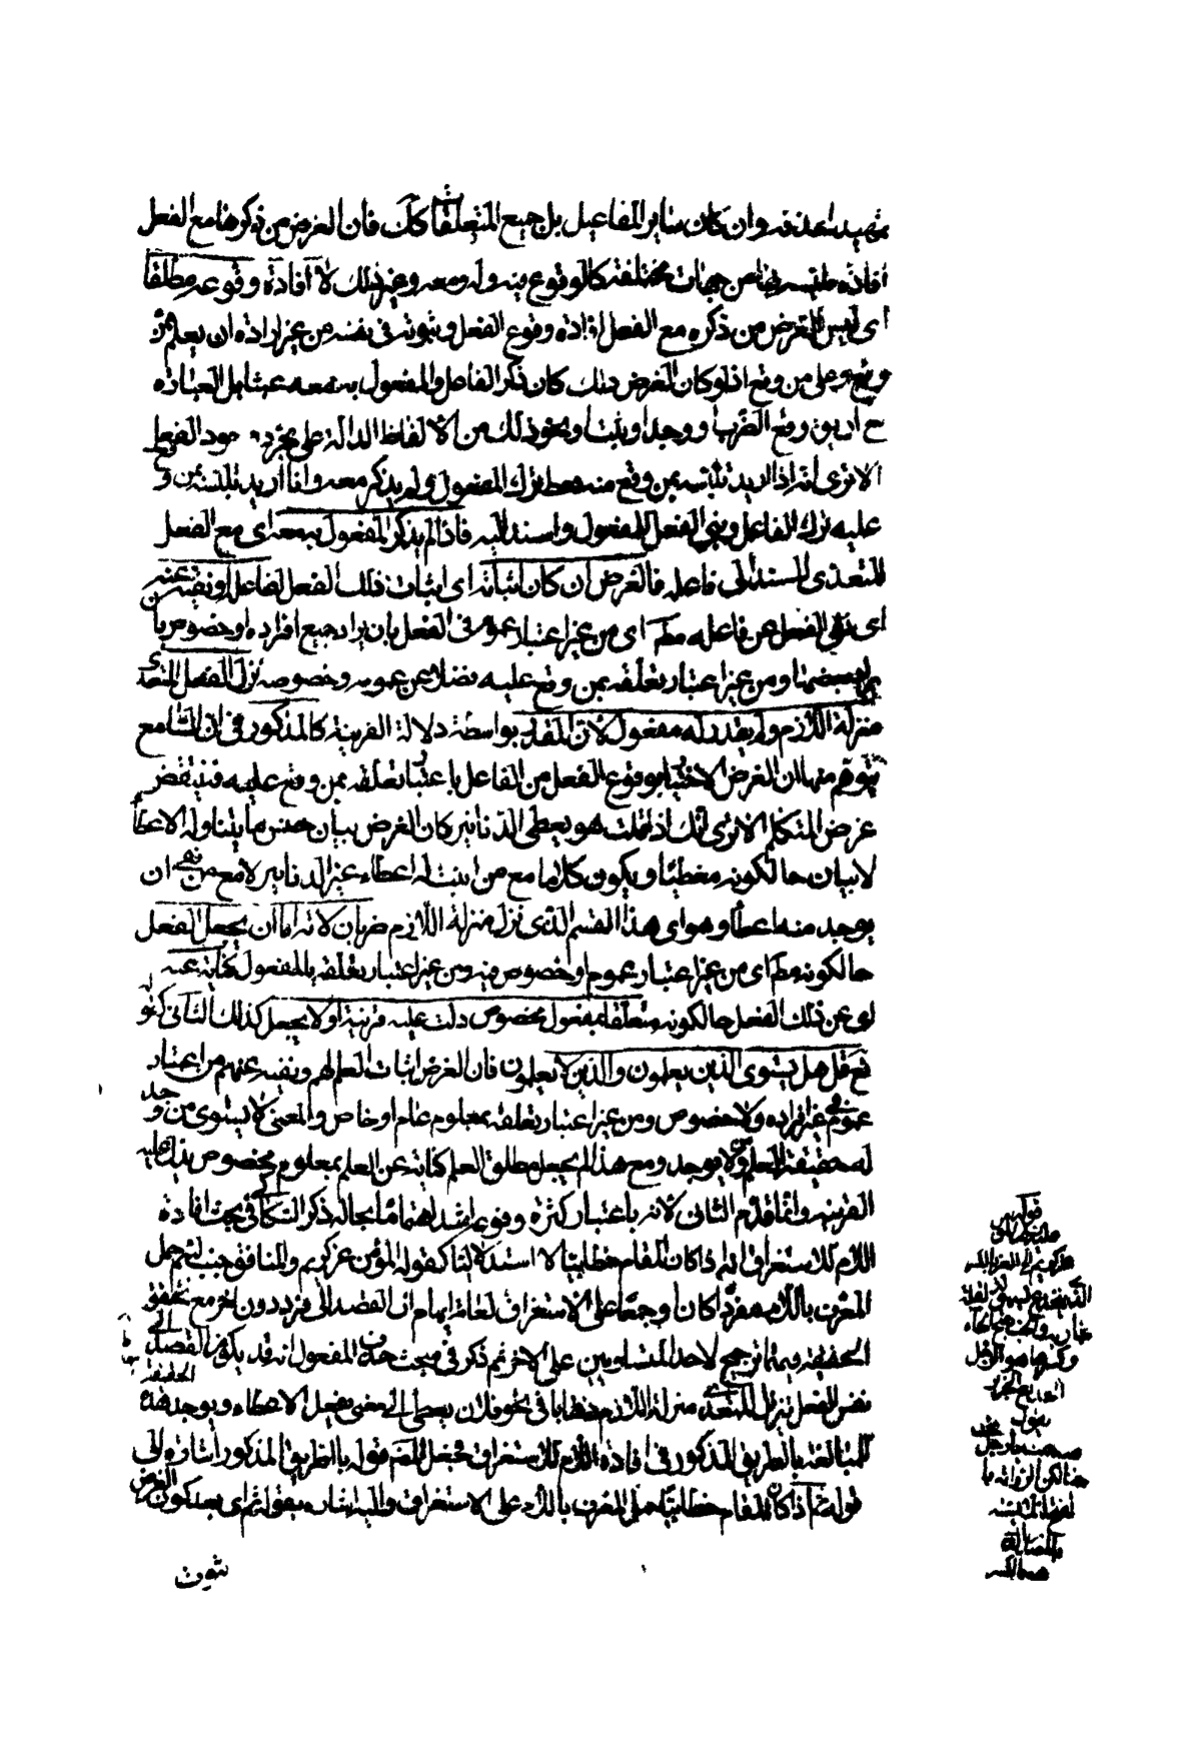 تمهيدا لحذفه وان كان ساير المفاعيل بل جميع المتعلقات كك فان الغرض من ذكرها مع الفعل
افادة تلبسه بها من جهات مختلفة كالوقوع فيه وله ومعه وغير ذلك لا افادة وقوعه مطلقا
اى ليس الغرض من ذكره مع الفعل افادة وقوع الفعل وثبوته فى نفسه من غير ارادة ان يعلم ممن
وقع وعلى من وقع اذ لو كان الغرض ذلك كان ذكر الفاعل والمفعول به معه عبثا بل العبارة
ح ان يق وقع الضرب او وجد او ثبت او نحو ذلك من الالفاظ الدالة على مجرد وجود الفعل
الا ترى انه اذا اريد تلبسه بمن وقع منه فقط ترك المفعول ولم يذكر معه واذا اريد تلبسه بمن وقع
عليه ترك الفاعل وبنى الفعل للمفعول واسند اليه فاذا لم يذكر المفعول به معه اى مع الفعل
المتعدى المسند الى فاعله فالغرض ان كان اثباته اى اثبات ذلك الفعل لفاعله او نفيه عنه
اى نفى الفعل عن فاعله مطـ اى من غير اعتبار عموم فى الفعل بان يراد جميع افراده او خصوص بان
يراد بعضها ومن غير اعتبار تعلقه بمن وقع عليه فضلا عن عمومه وخصوصه نزل الفعل المتعدى
منزلة اللازم ولم يقدر له مفعول لان المقدر بواسطة دلالة القرينة كالمذكور فى ان السامع
يتوهم منهما ان الغرض الاخبار بوقوع الفعل من الفاعل باعتبار تعلقه بمن وقع عليه فينتقض
غرض المتكلم الا ترى انك اذا قلت هو يعطى الدنانير كان الغرض بيان جنس ما يتناوله الاعطا
لا بيان حال كونه معطيا ويكون كلاما مع من اثبت له اعطاء غير الدنانير لا مع من نفى ان
يوجد منه اعطاء وهو اى هذا القسم الذى نزل منزلة اللازم ضربان لانه اما ان يجعل الفعل
حالكونه مطـ اى من غير اعتبار عموم او خصوص فيه ومن غير اعتبار تعلقه بالمفعول كناية عنه
اى عن ذلك الفعل حالكونه متعلقا بمفعول مخصوص دلت عليه قرينة او لا يجعل كذلك الثانى كقوله
تع قل هل يستوى الذين يعلمون والذين لا يعلمون فان الغرض اثبات العلم لهم ونفيه عنهم من غير اعتبار
عموم فى افراده ولا خصوص ومن غير اعتبار تعلقه بمعلوم عام او خاص والمعنى لا يستوى من وجد
له حقيقة العلم ومن لا يوجد ومع هذا لم يجعل مطلق العلم كناية عن العلم بمعلوم مخصوص يدل عليه
القرينة وانما قدم الثانى لانه باعتبار كثرة وقوعه اشد اهتماما بحاله ذكر السكاكى فى بحث افادة
اللام للاستغراق انه اذا كان المقام خطابيا لا استدلاليا كقوله المؤمن غر كريم والمنافق خب لئيم حمل
المعرف باللام مفردا كان او جمعا على الاستغراق لعلة ايهام ان القصد الى فرد دون اخر مع تحقق
الحقيقة فيهما ترجيح لاحد المتساويين على الاخر ثم ذكر فى مبحث حذف المفعول انه قد يكون القصد الى
نفس الفعل بتنزيل المتعدى منزلة اللازم ذهابا فى نحو فلان يعطى الى معنى يفعل الاعطاء ويوجد هذه الحقيقة
للمبالغة بالطريق المذكور فى افادة اللام للاستغراق فجعل المصـ قوله بالطريق المذكور اشارة الى
قوله ثم اذا كان المقام خطابيا حمل المعرف باللام على الاستغراق واليه اشار بقوله ثم اى بعد كون الغرض
ثبوت
قوله